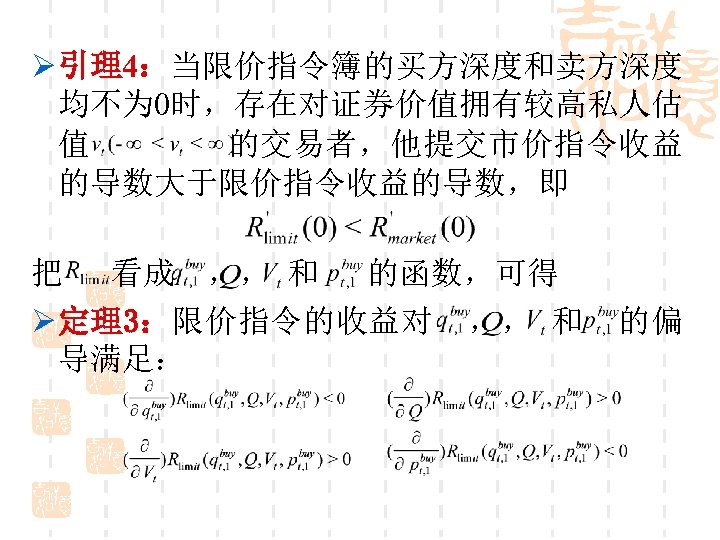 引理4：当限价指令簿的买方深度和卖方深度
均不为0时，存在对证券价值拥有较高私人估
值 v_t (-∞ < v_t < ∞ 的交易者，他提交市价指令收益
的导数大于限价指令收益的导数，即
R'_{limit}(0) < R'_{market}(0)
把 R_{limit} 看成 q_{t,1}^{buy}，Q，V_t 和 p_{t,1}^{buy} 的函数，可得
定理3：限价指令的收益对 q_{t,1}^{buy}，Q，V_t 和 p_{t,1}^{buy} 的偏
导满足：
(∂/∂q_{t,1}^{buy})R_{limit}(q_{t,1}^{buy},Q,V_t,p_{t,1}^{buy}) < 0 (∂/∂Q)R_{limit}(q_{t,1}^{buy},Q,V_t,p_{t,1}^{buy}) > 0
(∂/∂V_t)R_{limit}(q_{t,1}^{buy},Q,V_t,p_{t,1}^{buy}) > 0 (∂/∂p_{t,1}^{buy})R_{limit}(q_{t,1}^{buy},Q,V_t,p_{t,1}^{buy}) < 0